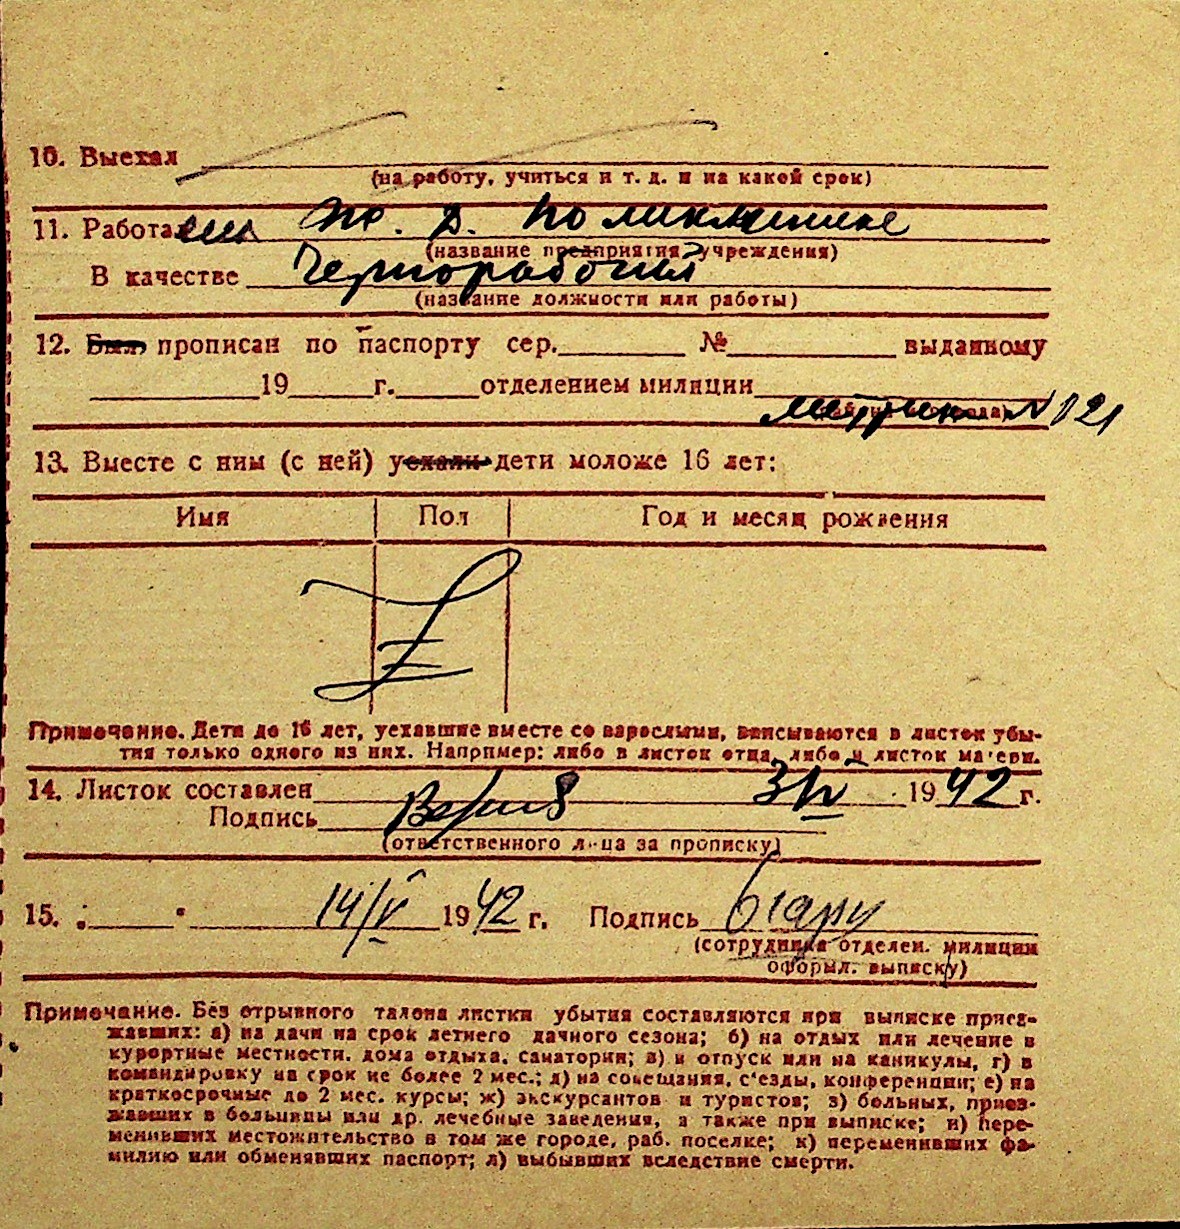 10. Выехал
(на работу, учиться и т. д. и на какой срок)
11. Работала ж. д. поликлинике
(название предприятия, учреждения)
В качестве Чернорабочий
(название должности или работы)
12. Был прописан по паспорту сер. № выданному
19 г. отделением милиции
метрика № 121
13. Вместе с ним (с ней) уехали дети моложе 16 лет:
Имя Пол Год и месяц рождения
Примечание. Дети до 16 лет, уехавшие вместе со взрослыми, вписываются в листок убы-
тия только одного из них. Например: либо в листок отца, либо в листок матери.
14. Листок составлен 3/IV 1942 г.
Подпись
(ответственного лица за прописку)
15. 14/V 1942 г. Подпись
(сотрудника отделен. милиции
оформл. выписку)
Примечание. Без отрывного талона листки убытия составляются при выписке приез-
жавших: а) на дачи на срок летнего дачного сезона; б) на отдых или лечение в
курортные местности, дома отдыха, санатории; в) в отпуск или на каникулы, г) в
командировку на срок не более 2 мес.; д) на совещания, с'езды, конференции; е) на
краткосрочные до 2 мес. курсы; ж) экскурсантов и туристов; з) больных, приез-
жавших в больницы или др. лечебные заведения, а также при выписке; и) пере-
менивших местожительство в том же городе, раб. поселке; к) переменивших фа-
милию или обменявших паспорт; л) выбывших вследствие смерти.